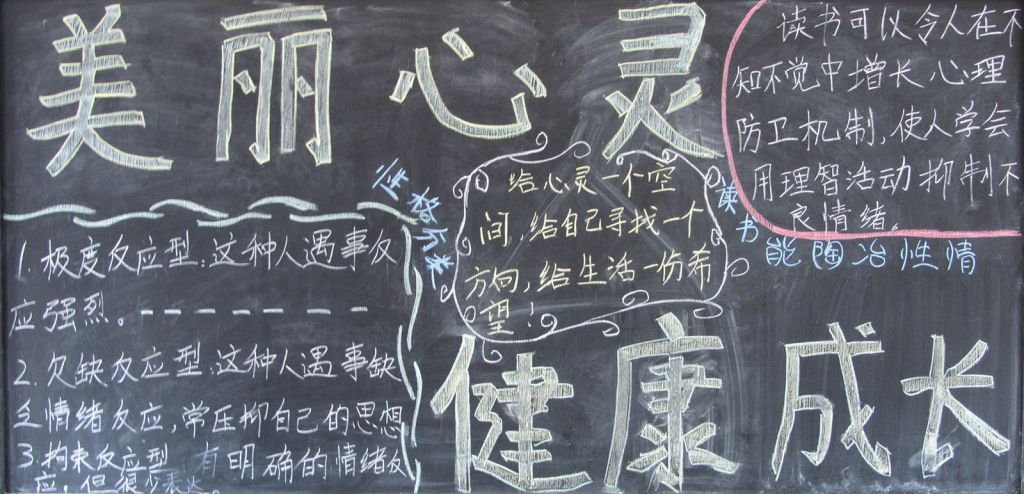 美丽心灵
读书可以令人在不
知不觉中增长心理
防卫机制,使人学会
用理智活动抑制不
良情绪。
读书
能陶冶性情
性格分类
给心灵一个空
间,给自己寻找一个
方向,给生活一份希
望!
1.极度反应型:这种人遇事反
应强烈。--------
2.欠缺反应型:这种人遇事缺
乏情绪反应,常压抑自己的思想
3.拘束反应型 有明确的情绪反
应,但很少表达。
健康成长